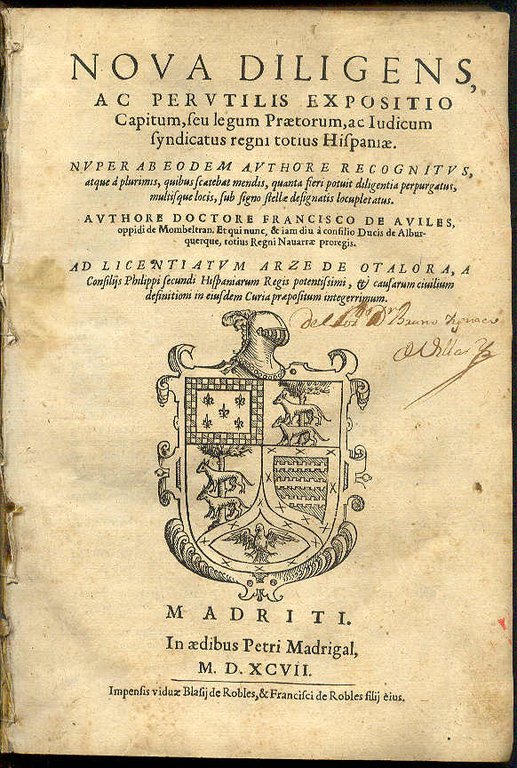 NOVA DILIGENS,
AC PERVTILIS EXPOSITIO
Capitum, ſeu legum Prætorum, ac Iudicum
ſyndicatus regni totius Hiſpaniæ.
NVPER AB EODEM AVTHORE RECOGNITVS,
atque à plurimis, quibus ſcatebat mendis, quanta fieri potuit diligentia perpurgatus,
multiſque locis, ſub ſigno ſtellæ deſignatis locupletatus.
AVTHORE DOCTORE FRANCISCO DE AVILES,
oppidi de Mombeltran. Et qui nunc, & iam diu à conſilio Ducis de Albur-
querque, totius Regni Nauarræ proregis.
AD LICENTIATVM ARZE DE OTALORA, A
Conſilijs Philippi ſecundi Hiſpaniarum Regis potentiſsimi, & cauſarum ciuilium
definitioni in eiuſdem Curia præpoſitum integerrimum.
Bruno
MADRITI.
In ædibus Petri Madrigal,
M. D. XCVII.
Impenſis viduæ Blaſij de Robles, & Franciſci de Robles filij eius.